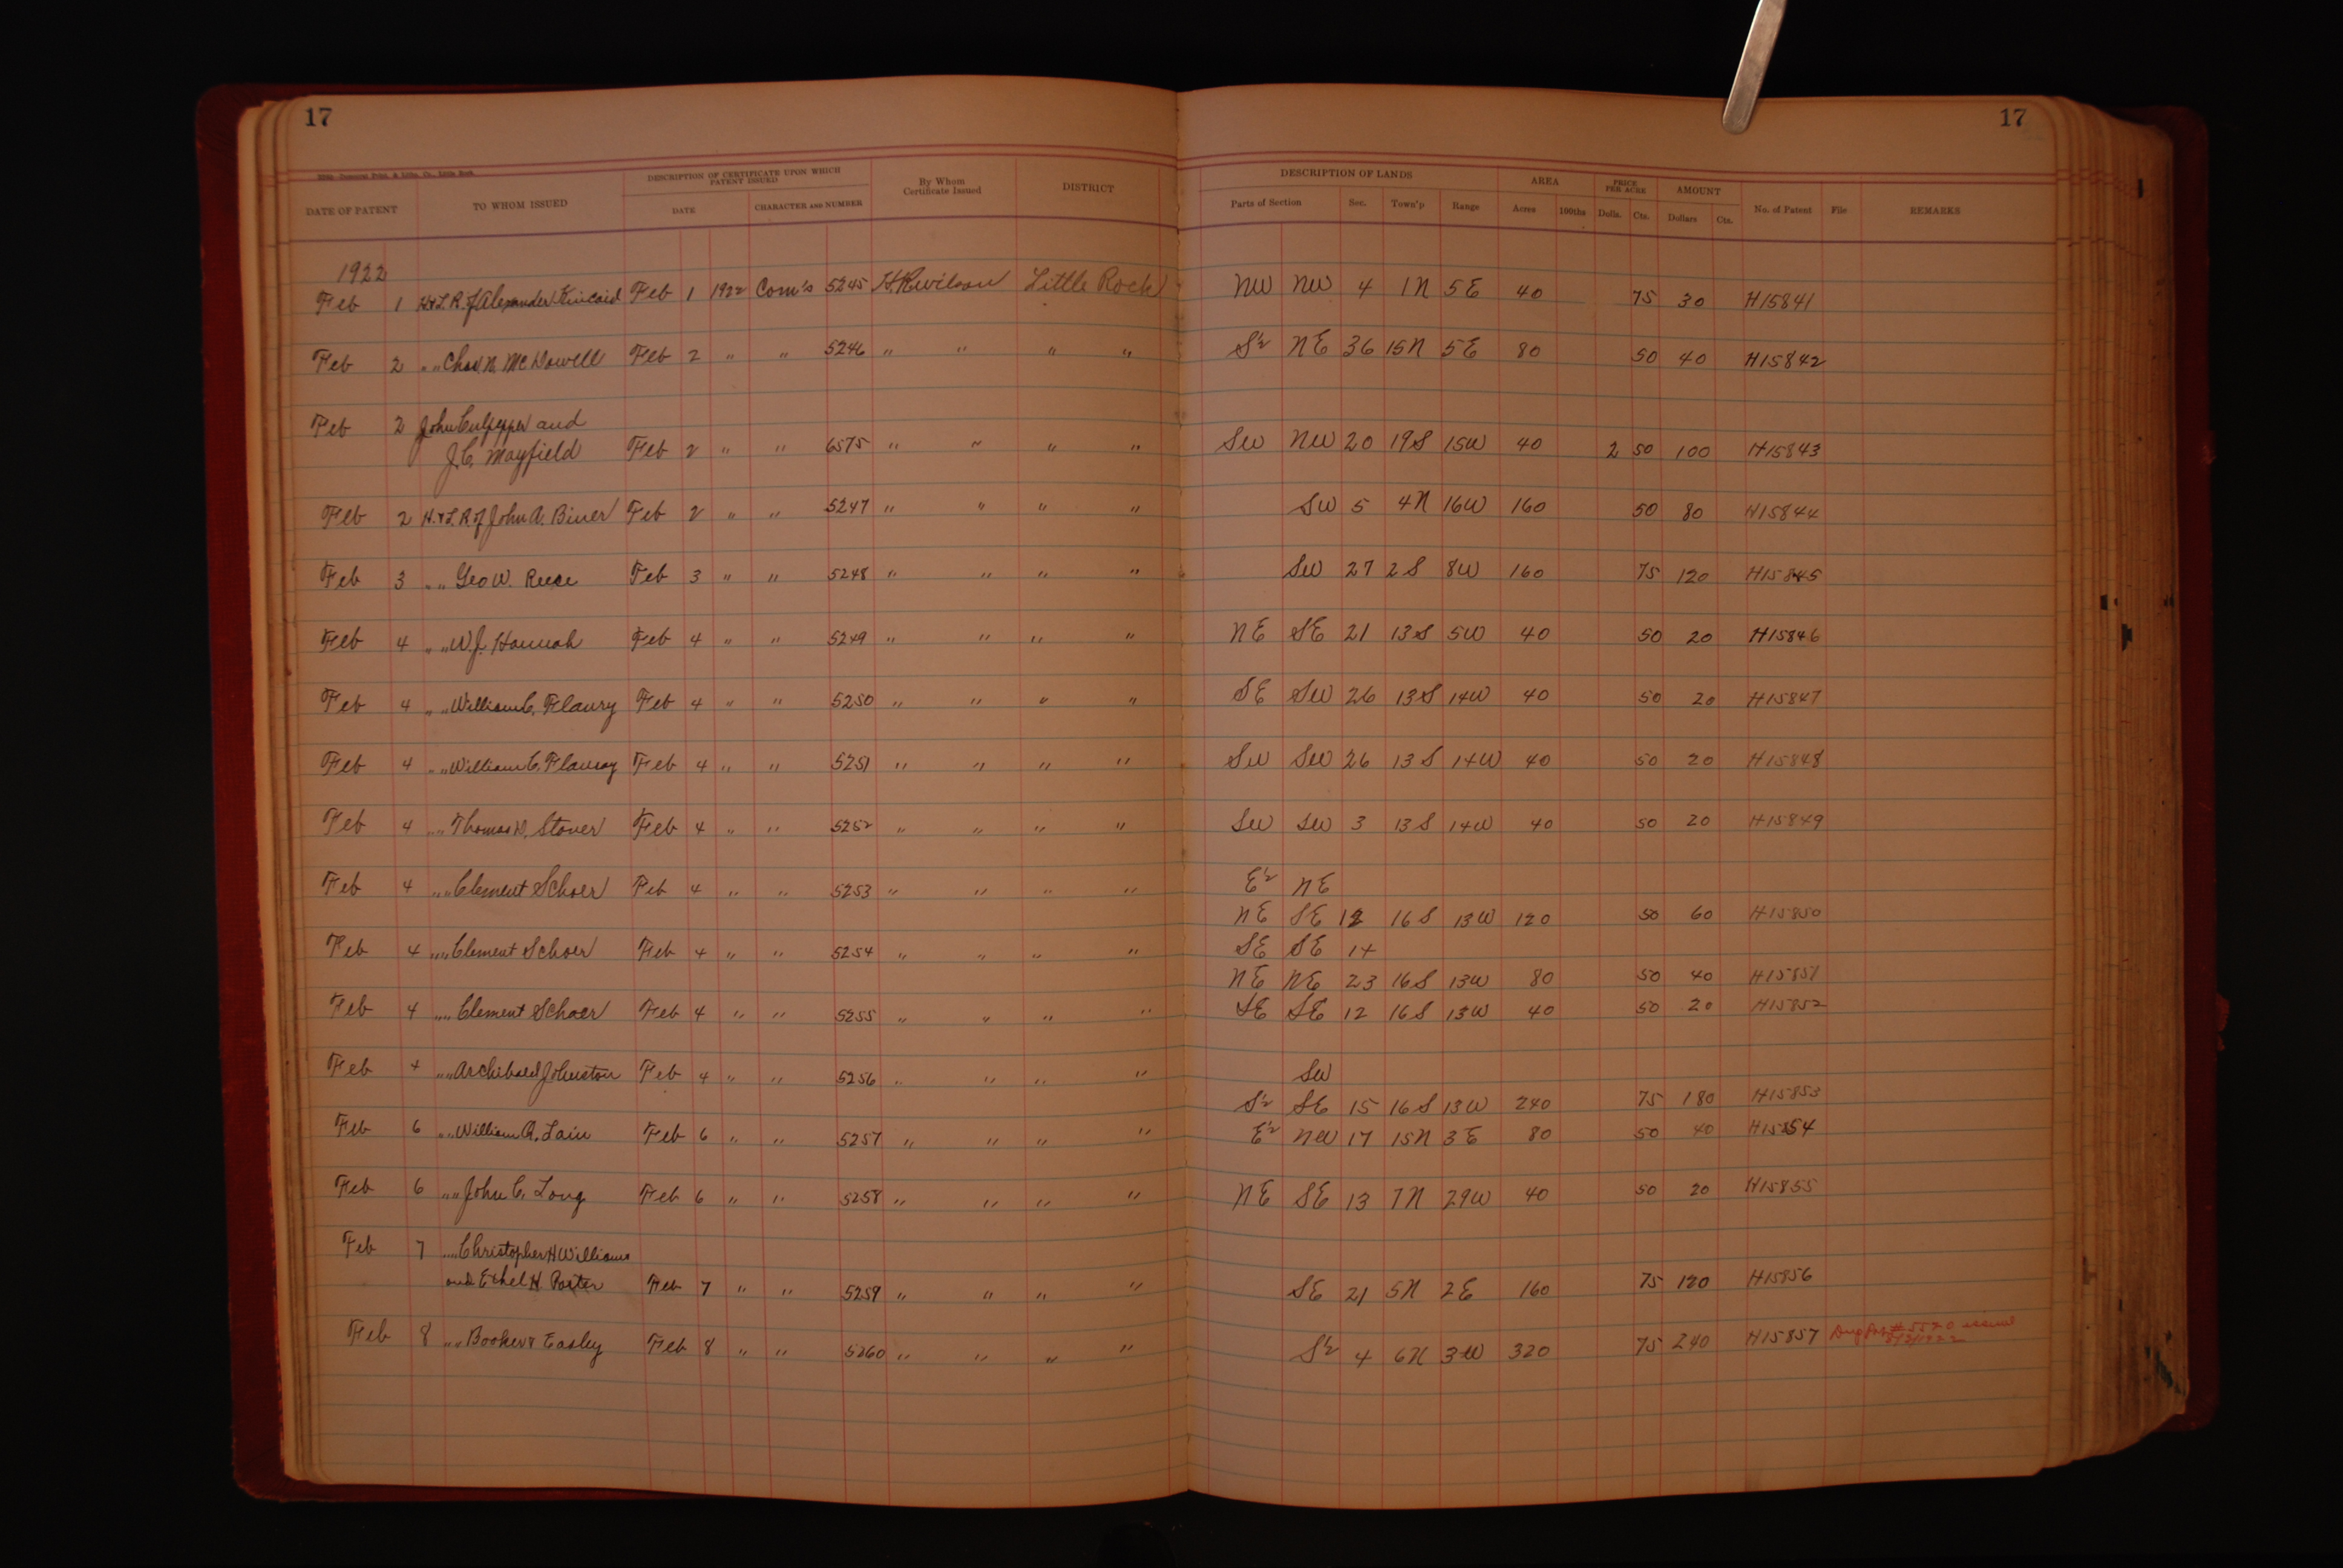 17 17
DESCRIPTION OF CERTIFICATE UPON WHICH PATENT ISSUED DESCRIPTION OF LANDS AREA PRICE PER ACRE AMOUNT
DATE OF PATENT TO WHOM ISSUED DATE CHARACTER AND NUMBER By Whom Certificate Issued DISTRICT Parts of Section Sec. Town'p Range Acres 100ths Dolls. Cts. Dollars Cts. No. of Patent File REMARKS
1922
Feb 1 H & L. R. of Alexander Kincaid Feb 1 1922 Com's 5245 H.R. Wilson Little Rock NW NW 4 1N 5E 40 75 30 H15841
Feb 2 " " Chas. N. McDowell Feb 2 " " 5246 " " " " S½ NE 36 15N 5E 80 50 40 H15842
Feb 2 John Culpepper and
J.C. Mayfield Feb 2 " " 6575 " " " " SW NW 20 19S 15W 40 2 50 100 H15843
Feb 2 H. & L. R. of John A. Biner Feb 2 " " 5247 " " " " SW 5 4N 16W 160 50 80 H15844
Feb 3 " " Geo W. Reece Feb 3 " " 5248 " " " " SW 27 2S 8W 160 75 120 H15845
Feb 4 " " W.J. Hannah Feb 4 " " 5249 " " " " NE SE 21 13S 5W 40 50 20 H15846
Feb 4 " " William C. Flaury Feb 4 " " 5250 " " " " SE SW 26 13S 14W 40 50 20 H15847
Feb 4 " " William C. Feb 4 " " 5251 " " " " SW SW 26 13S 14W 40 50 20 H15848
Feb 4 " " Thomas W. Stover Feb 4 " " 5252 " " " " SW SW 3 13S 14W 40 50 20 H15849
Feb 4 " " Clement Schoer Feb 4 " " 5253 " " " " E½ NE
NE SE 12 16S 13W 120 50 60 H15850
Feb 4 " " Clement Schoer Feb 4 " " 5254 " " " " SE SE 14
NE NE 23 16S 13W 80 50 40 H15851
Feb 4 " " Clement Schoer Feb 4 " " 5255 " " " " SE SE 12 16S 13W 40 50 20 H15852
Feb 4 " " Archibald Johnston Feb 4 " " 5256 " " " " SW
S½ SE 15 16S 13W 240 75 180 H15853
Feb 6 " " William A. Lain Feb 6 " " 5257 " " " " E½ NW 17 15N 3E 80 50 40 H15854
Feb 6 " " John C. Long Feb 6 " " 5258 " " " " NE SE 13 7N 29W 40 50 20 H15855
Feb 7 " " Christopher H Williams
and Ethel H. Porter Feb 7 " " 5259 " " " " SE 21 5N 2E 160 75 120 H15856
Feb 8 " " Booker & Easley Feb 8 " " 5260 " " " " S½ 4 6N 3W 320 75 240 H15857 # 5520 issued